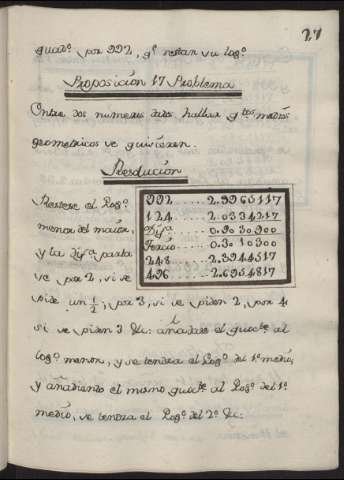 27
por 992, qe restan su Logo.
Proposición 17 Problema
Entre dos numeros dados hallar qtos medios
geometricos se quisieren.
Resolución
Restese el Logo.
menor del maior,
y la Difa. parta
se por 2, si se
pide un 1/2; por 3, si se piden 2, por 4
si se piden 3 &c: añadase el quocte al
Logo menor, y se tendra el Logo. del 1o medio,
y añadiendo el mismo quocte al Logo. del 1o
medio, se tendra el Logo. del 2o &c:
992......2.9965117
124......2.0934217
Difa.....0.9030900
Tercio...0.3010300
248......2.3944517
496......2.6954817